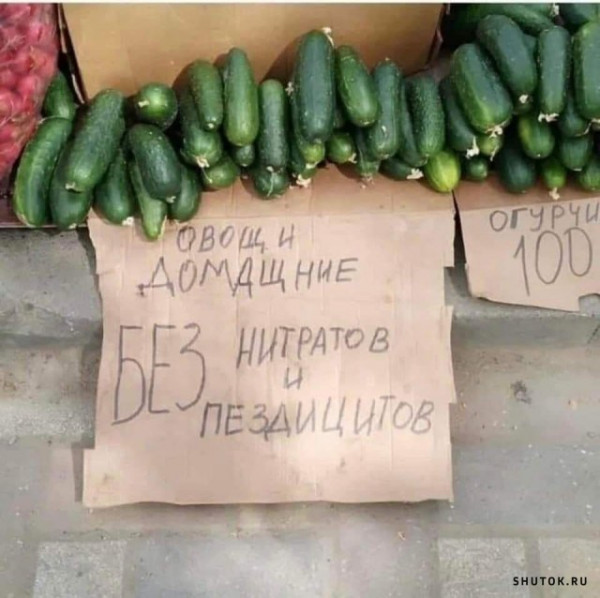 ОВОЩИ
ДОМАЩНИЕ
БЕЗ НИТРАТОВ
И
ПЕЗДИЦИТОВ
ОГУРЧИ
100
SHUTOK.RU